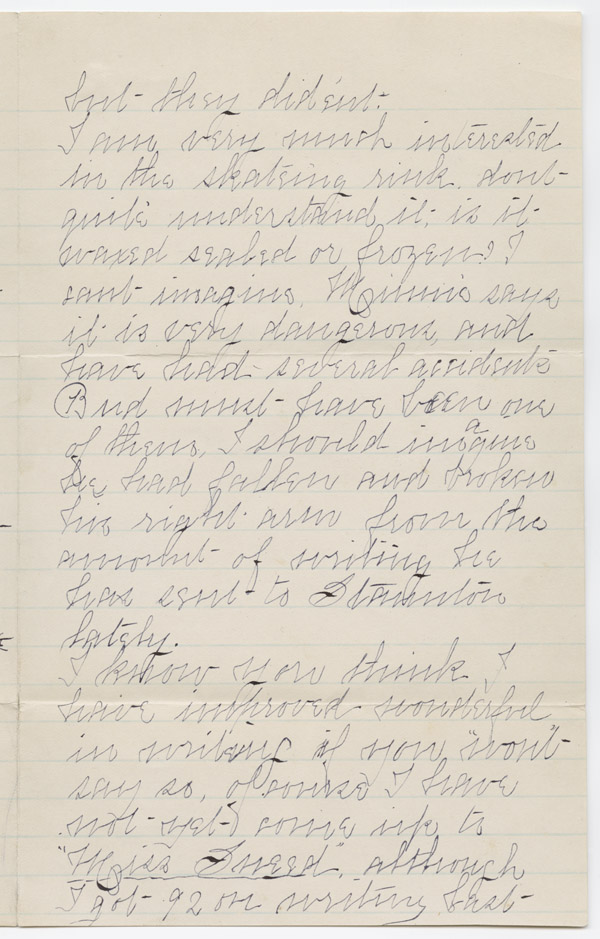 but they did'ent.
I am very much interested
in the skateing rink. dont
quite understand it, is it
waxed sealed or frozen? I
cant imagine, Minnie says
it is very dangerous, and
have had several accidents
Bud must have been one
of them, I should imagine
he had fallen and broken
his right arm from the
amount of writing he
has sent to Staunton
lately.
I know you think I
have improved wonderful
in writing if you "won't"
say so, of course I have
not yet come up to
"Miss Sneed", although
I got 92 on writing last